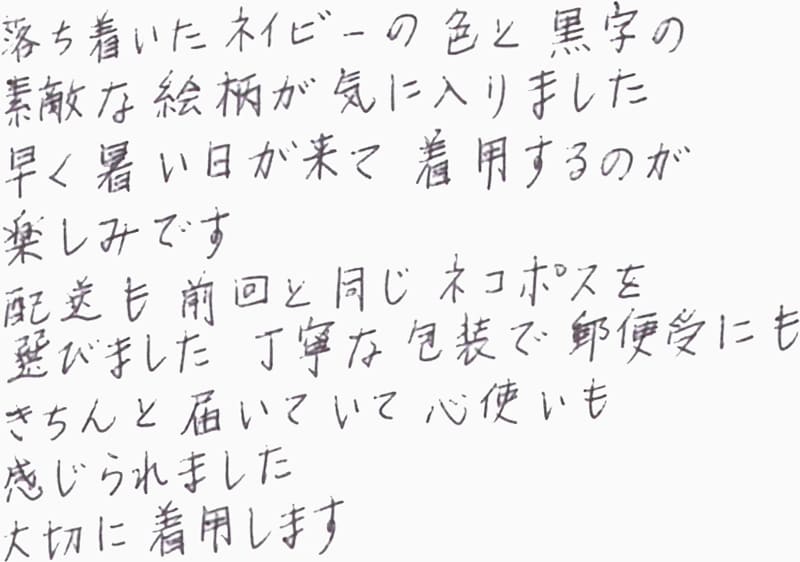 落ち着いたネイビーの色と黒字の
素敵な絵柄が気に入りました
早く暑い日が来て着用するのが
楽しみです
配送も前回と同じネコポスを
選びました 丁寧な包装で郵便受にも
きちんと届いていて心使いも
感じられました
大切に着用します